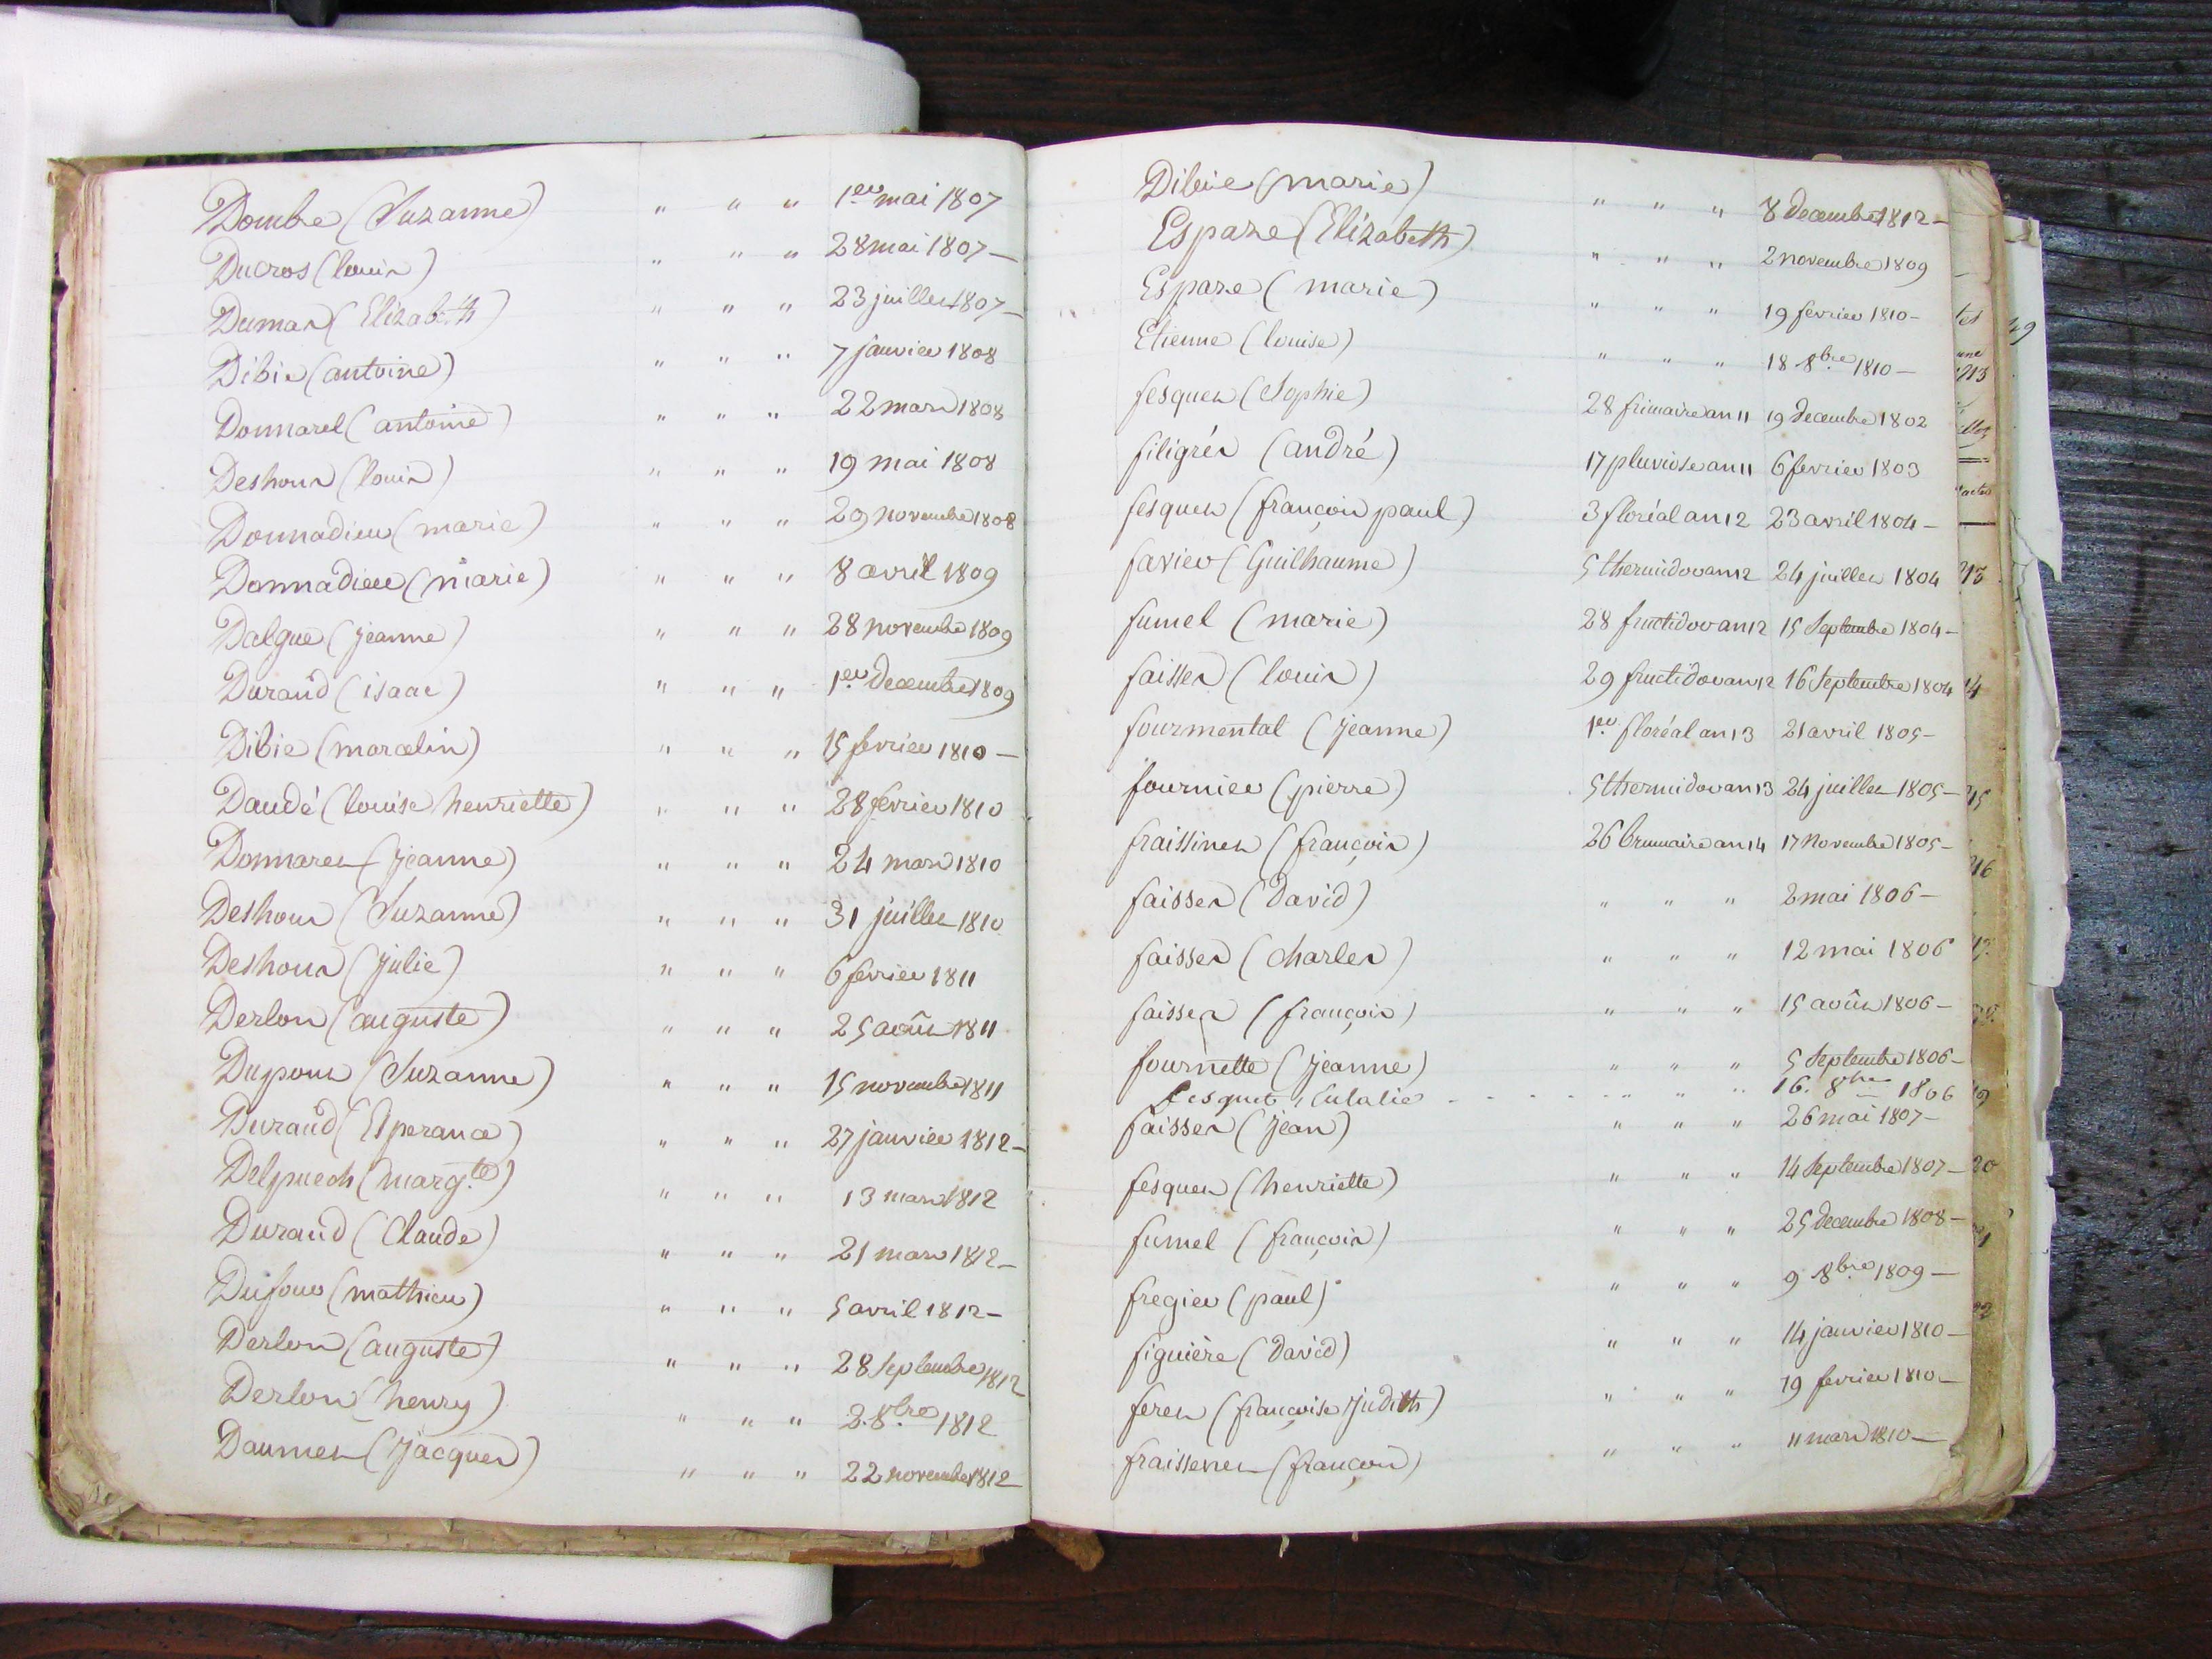 Dombre (Suzanne) " " " 1er mai 1807
Ducros (louis) " " " 28 mai 1807 —
Dumas (Elizabeth) " " " 23 juillet 1807 —
Dibie (antoine) " " " 7 janvier 1808
Donnarel (antoine) " " " 22 mars 1808
Deshous (louis) " " " 19 mai 1808
Donnadieu (marie) " " " 29 novembre 1808
Donnadieu (marie) " " " 8 avril 1809
Dalgue (jeanne) " " " 28 novembre 1809
Durand (isaac) " " " 1er decembre 1809
Dibie (marcelin) " " " 15 fevrier 1810 —
Daudé (louise henriette) " " " 28 fevrier 1810
Donnaret (jeanne) " " " 24 mars 1810
Deshous (Suzanne) " " " 31 juillet 1810
Deshous (julie) " " " 6 fevrier 1811
Derlon (auguste) " " " 25 août 1811
Dupont (Suzanne) " " " 15 novembre 1811
Durand (Esperance) " " " 27 janvier 1812 —
Delpuech (marg.te) " " " 13 mars 1812
Durand (Claude) " " " 21 mars 1812 —
Dufour (mathieu) " " " 5 avril 1812 —
Derlon (auguste) " " " 28 Septembre 1812
Derlon (henry) " " " 2 8bre 1812
Daumet (jacques) " " " 22 novembre 1812
Dibie (marie) " " " 8 decembre 1812 —
Espaze (Elizabeth) " " " 2 novembre 1809
Espaze (marie) " " " 19 fevrier 1810 —
Etienne (louise) " " " 18 8bre 1810 —
fesquet (Sophie) 28 frimaire an 11 19 decembre 1802
filigrés (andré) 17 pluviose an 11 6 fevrier 1803
fesquet (françois paul) 3 floréal an 12 23 avril 1804 —
favier (Guilhaume) 5 thermidor an 12 24 juillet 1804
fumel (marie) 28 fructidor an 12 15 Septembre 1804 —
faisses (louis) 29 fructidor an 12 16 Septembre 1804
fourmental (jeanne) 1er floréal an 13 21 avril 1805 —
fournier (pierre) 5 thermidor an 13 24 juillet 1805 —
fraissinet (françois) 26 brumaire an 14 17 Novembre 1805 —
faisses (David) " " " 2 mai 1806 —
faisses (charles) " " " 12 mai 1806
faisses (françois) " " " 15 août 1806 —
fournette (jeanne) " " " 5 Septembre 1806 —
Fesquet, Eulalie " " " 16. 8bre 1806
faisses (jean) " " " 26 mai 1807 —
fesquet (henriette) " " " 14 Septembre 1807 —
fumel (françois) " " " 25 decembre 1808 —
fregier (paul) " " " 9 8bre 1809 —
figuière (David) " " " 14 janvier 1810 —
feret (françoise judith) " " " 19 fevrier 1810 —
fraissenet (françois) " " " 11 mars 1810 —